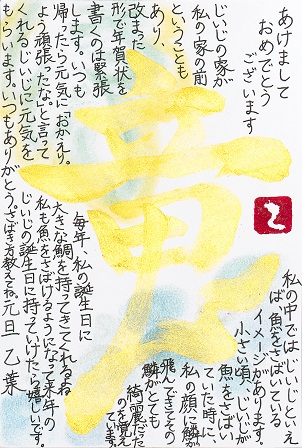 あけまして
おめでとう
ございます
じいじの家が
私の家の前
ということも
あり、
改まった
形で年賀状を
書くのは緊張
します。いつも
帰ったら元気に「おかえり。
よう頑張ったな。」と言って
くれるじいじに元気を
もらいます。いつもありがとう
竜
私の中ではじいじといえ
ば魚をさばいている
イメージがあります。
小さい頃、じいじが
魚をさば
いていた時に
私の顔に鱗が
飛んできてその
鱗がとても
綺麗だった
のを覚え
ています。
毎年、私の誕生日に
大きな鯛を持ってきてくれるね。
私も魚をさばけるようになって来年の
じいじの誕生日に持っていけたら嬉しいです。
さばき方教えてね。元旦 乙葉